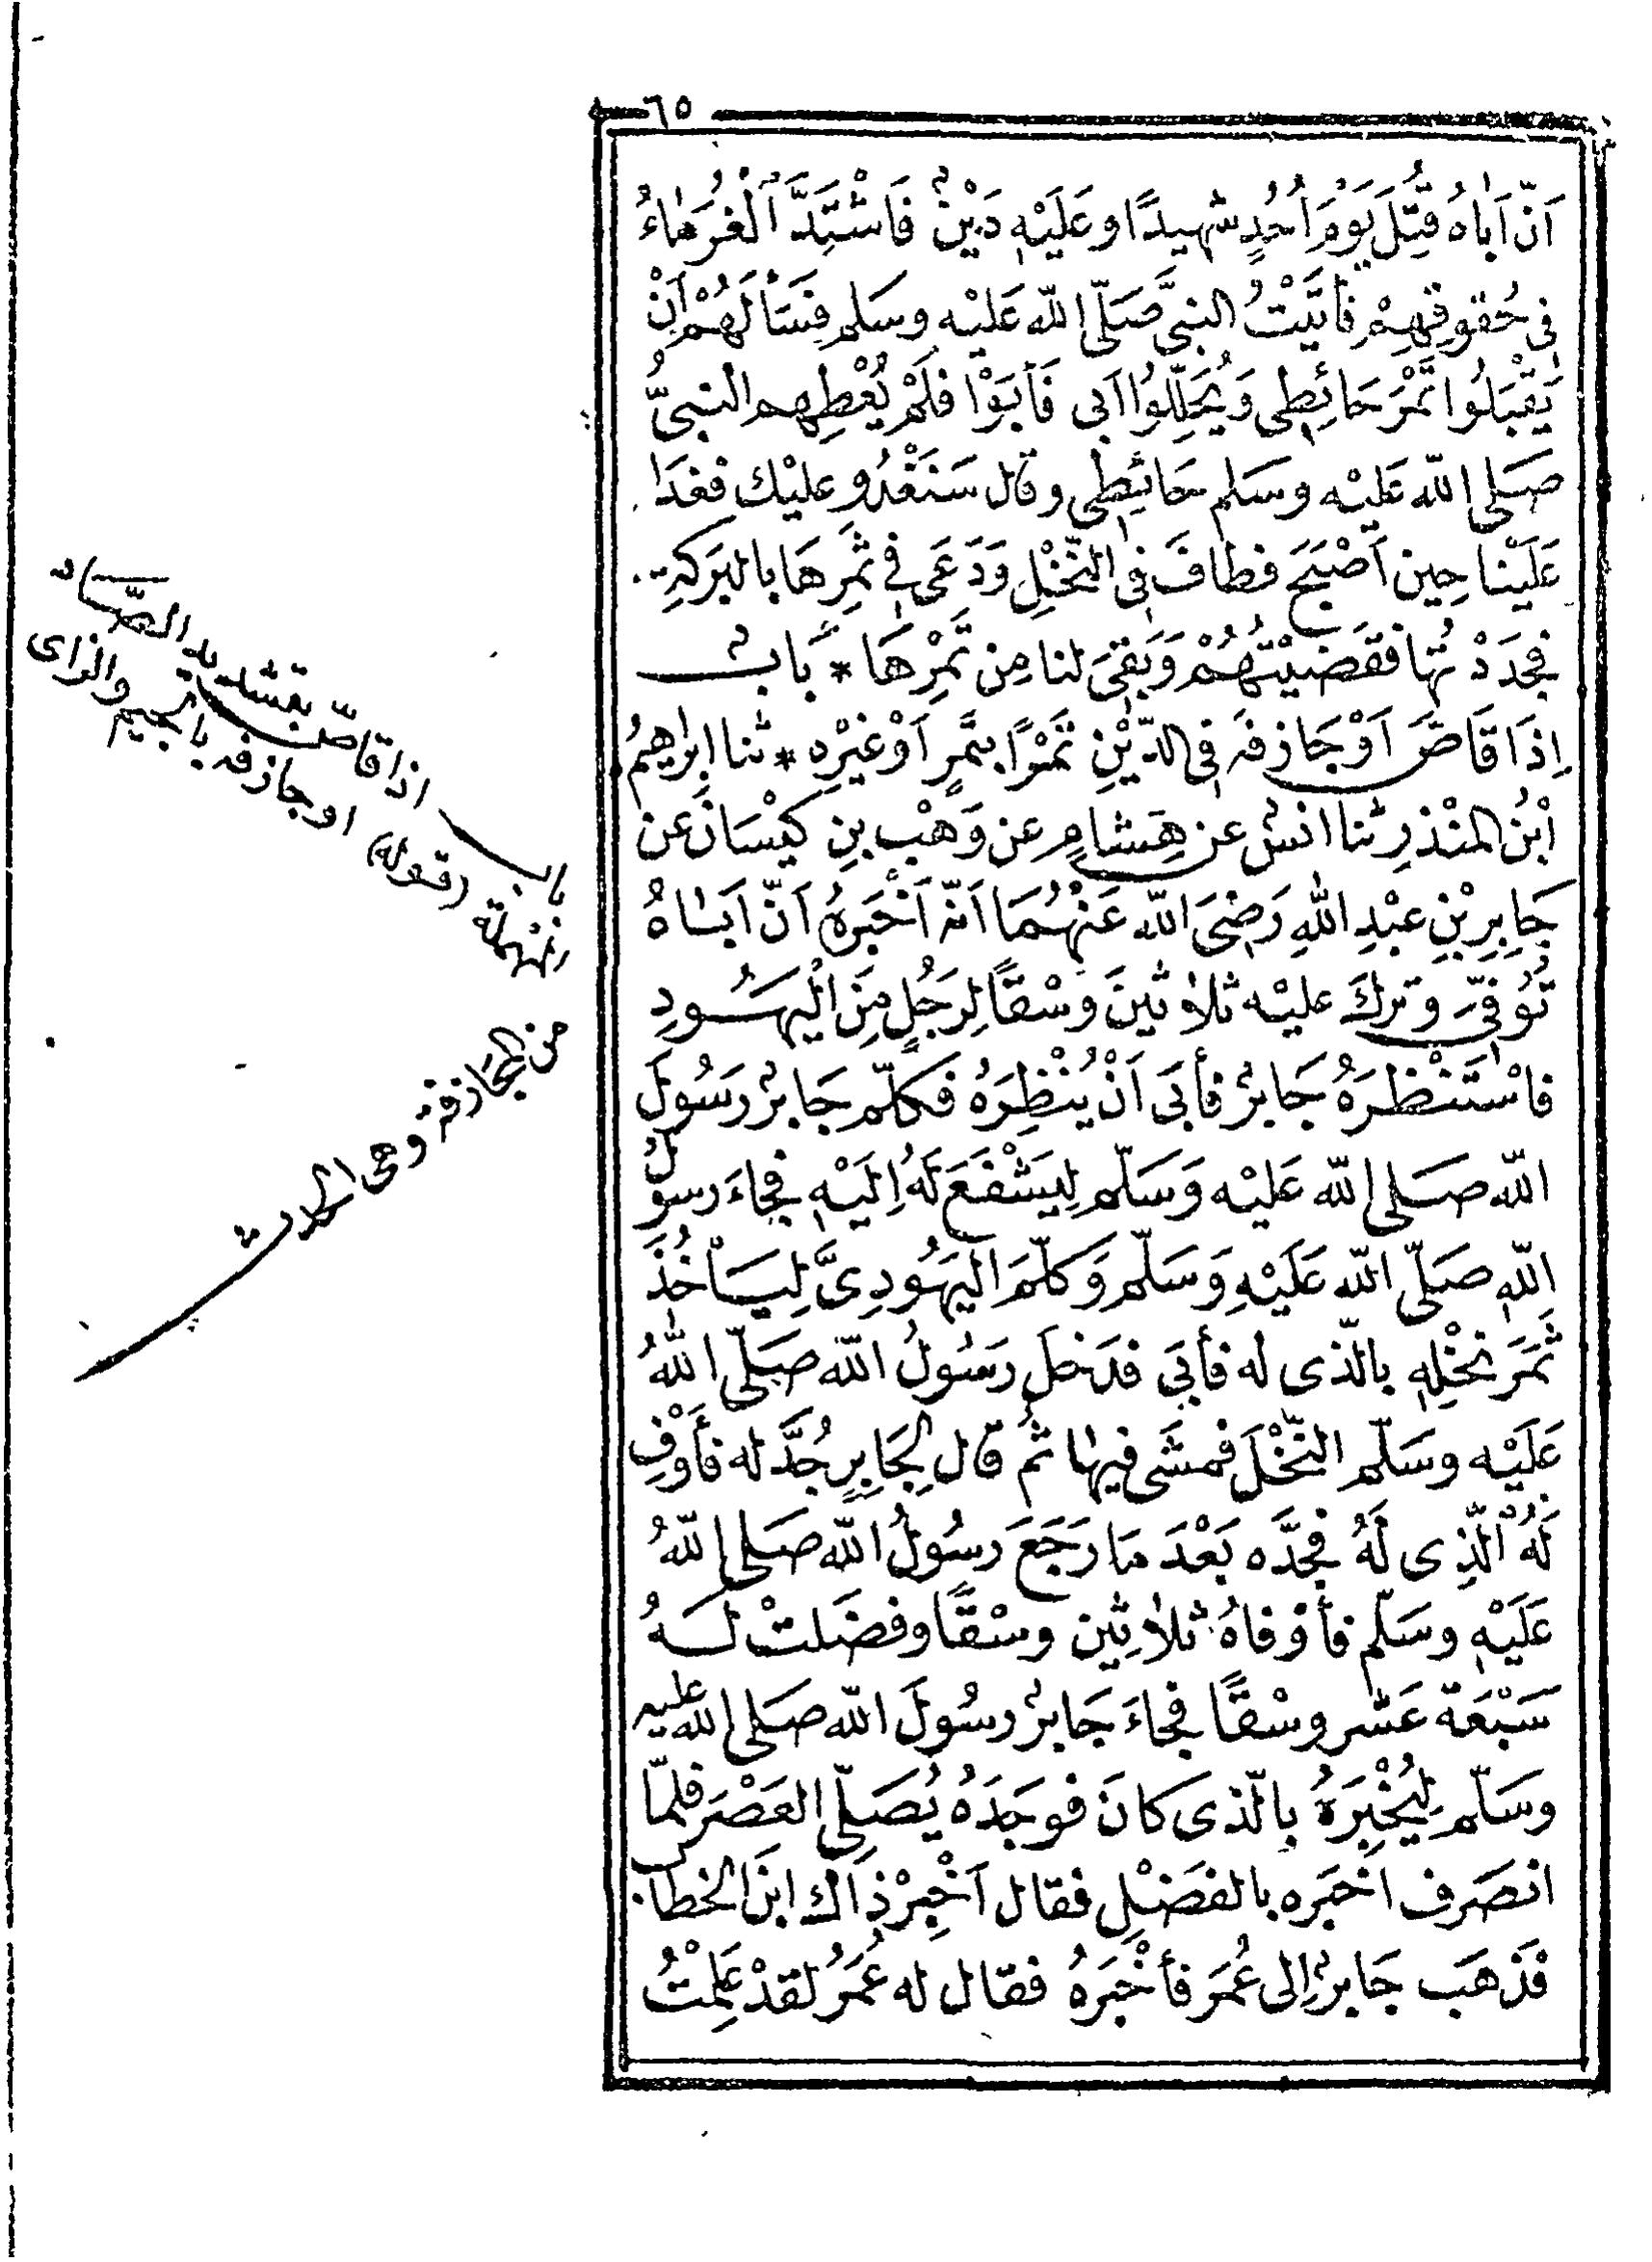 ٦٥
اَنّ اَباهُ قُتِلَ يَوْمَ اُحُدٍ شهيدًا وعَلَيْهِ دَيْنٌ فَاشْتَدَّ الْغُرَماءُ
فى حُقوقِهِمْ فأتَيْتُ النبىَّ صَلّى اللّه عَليْه وسَلم فسَأَلَهُمْ اَنْ
يَقْبَلُوا تَمْرَ حَائِطِى وَيُحَلِّلُوا اَبى فَأَبَوْا فلَمْ يُعْطِهم النبىُّ
صَلى اللّه عَليْه وسَلم حَائِطِى وقال سَنَغْدُو عليْك فغدَا
عَلَيْنا حِين اَصْبَحَ فطافَ فى النّخْلِ وَدَعَى فى ثَمَرِهَا بالبَركةِ
فجدَدْتُها فقَضَيْتُهُمْ وَبَقىَ لنا مِن تَمْرِهَا * بَابٌ
اِذَا قَاصَّ اَوْ جَازفه فى الدّيْنِ تَمْرًا بتمْرٍ اَوْ غيْرِهِ * ثنا اِبراهيمُ
ابْنُ المنْذرِ ثنا انسٌ عن هِشامٍ عن وَهْب بنِ كيْسَانَ عن
جَابِرِ بْنِ عبْدِ اللهِ رَضِىَ اللّه عَنْهُمَا اَنّه اَخْبَرَهُ اَنّ اَباهُ
تُوُفىّ وتركَ عليْه ثلاثينَ وسْقًا لِرَجُلٍ مِنَ الْيهَودِ
فاسْتَنْظرَهُ جَابرٌ فأبَى اَنْ يُنْظِرَهُ فكلّم جَابرٌ رَسُولَ
اللّه صَلى اللّه عَليْه وَسَلّم لِيَشْفَعَ لَهُ اِلَيْهِ فجاءَ رسولُ
اللّهِ صَلّى اللّه عَلَيْهِ وَسَلّم وَكلّمَ اليَهُودِىَّ لِيَأْخُذَ
ثَمَرَ نخْلِهِ بالّذى له فأبَى فدَخلَ رَسُولُ اللّه صَلّى اللهُ
عَلَيْه وسَلّم النّخْلَ فمشَى فيها ثمّ قال لِجَابِرٍ جُدَّ له فأَوْفِ
لَهُ الّذِى لَهُ فجدَّه بَعْدَ مَا رَجَعَ رسُولُ اللّه صَلى اللّهُ
عَلَيْهِ وسَلّم فأوْفاهُ ثلاثِين وسْقًا وفضَلتْ لَهُ
سَبْعَة عَشر وسْقًا فجاءَ جَابرٌ رسُولَ اللّه صَلى اللّه عليه
وسَلّم لِيُخْبِرَهُ بالّذى كانَ فوجَدَهُ يُصَلِّى العَصْرَ فلمّا
انصَرف اخبَره بالفضْلِ فقال اَخْبِرْ ذٰلك ابنَ الخطاب
فذهَب جَابرٌ اِلى عُمَرَ فأخْبرَهُ فقال له عُمَرُ لقدْ عَلِمْتُ
باب اذا قاصّ بتشديد الصّاد
المهملة (قوله) او جازفه بالجيم والزاى
من المجازفة وهى الحدث